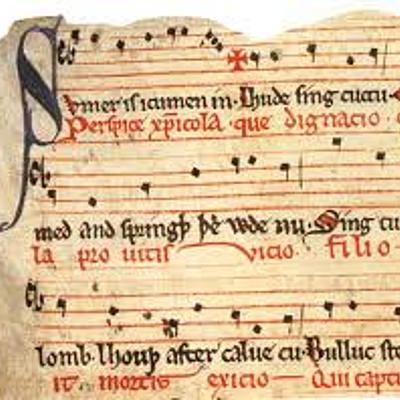 Sumer is icumen in. Lhude sing cuccu.
Perspice xp̄icola. que dignacio.
med and springþ þe wde nu. Sing cu
la pro uitis vicio. filio
lomb. lhouþ after calue cu. Bulluc ste
it mortis exicio Qui capti